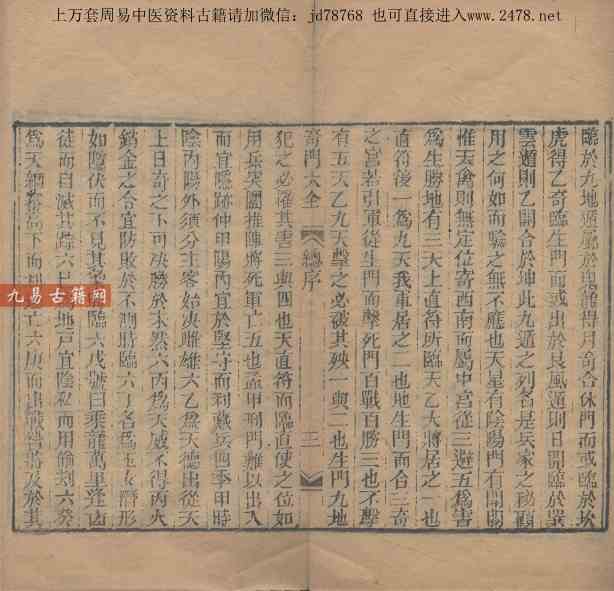 上万套周易中医资料古籍请加微信：jd78768 也可直接进入www.2478.net
臨於九地遁屬於鬼龍得月奇合休門而或臨於坎
虎得乙奇臨生門而或出於艮風遁則日開臨於巽
雲遁則乙開合於坤此九遁之列名是兵家之秘竅
用之何如而驗之無不應也天星有陰陽門有開闔
惟天禽則無定位寄西南而屬中宮從三避五爲害
爲生勝地有三天上直符所臨天乙大將居之一也
直符後一爲九天我軍居之二也地生門而合三奇
之宮若引軍從生門而擊死門百戰百勝三也不擊
有五天乙九天擊之必被其殃一與二也生門九地
奇門大全 總序 三
犯之必罹其害三與四也天直符而臨直使之位如
用兵突圍推陣將死軍亡五也孟甲刑門難以出入
而宜隱跡仲甲陽內宜於堅守而利藏兵四季甲時
陰內陽外須分主客始決雌雄六乙爲天德出從天
上日奇之下可決勝於未然六丙爲天威不得丙火
鑠金之合宜防敗於不測時臨六丁名爲玉女潛形
如隱伏而不見其 臨六戊號曰乘龍萬里逢凶
徒而自滅其踪六 地戶宜陰私而用偷刻六癸
爲天網 下而 亡六庚而出 於其
九易古籍网